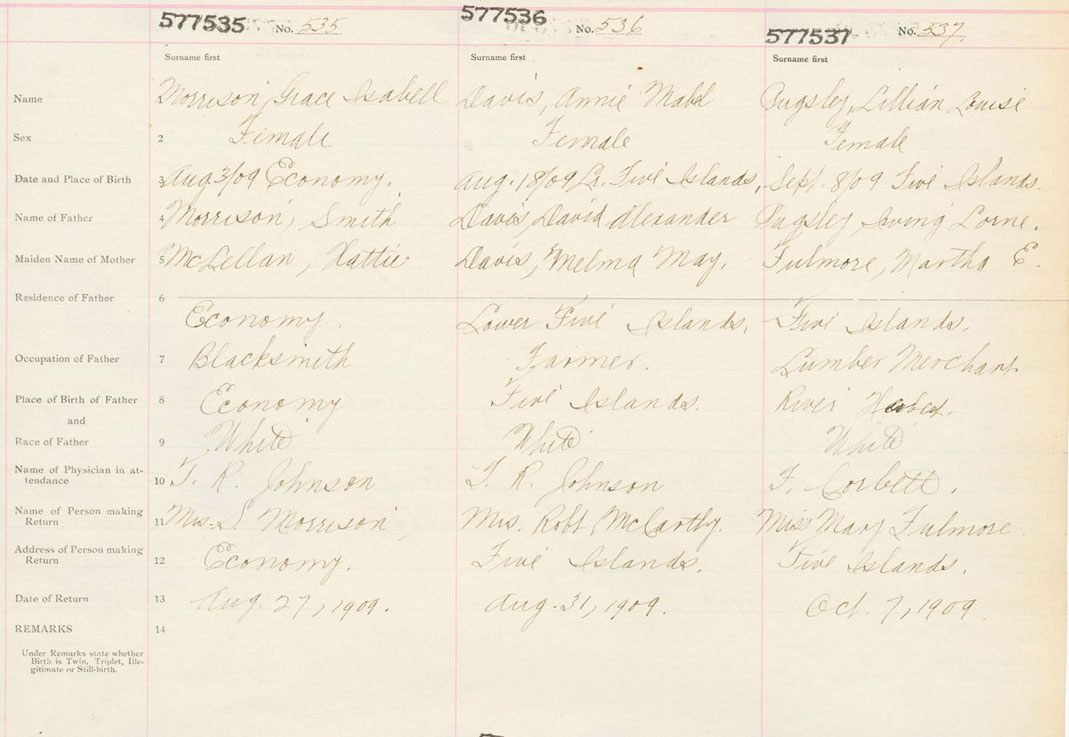 577535 No. 535 577536 No. 536 577537 No. 537
Surname first Surname first Surname first
Name Morrison, Grace Isabell Davis, Annie Mabel Pugsley, Lillian Louise
Sex 2 Female Female Female
Date and Place of Birth 3 Aug 3/09 Economy. Aug. 18/09 Lr. Five Islands. Sept. 8/09 Five Islands.
Name of Father 4 Morrison, Smith Davis, David Alexander Pugsley, Irving Lorne.
Maiden Name of Mother 5 McLellan, Hattie Davis, Melma May. Fulmore, Martha E.
Residence of Father 6
Economy. Lower Five Islands. Five Islands.
Occupation of Father 7 Blacksmith Farmer. Lumber Merchant
Place of Birth of Father 8 Economy Five Islands. River
and
Race of Father 9 White White White
Name of Physician in at-
tendance 10 T. R. Johnson T. R. Johnson F. Corbett.
Name of Person making
Return 11 Mrs. S. Morrison Mrs. Robt. McCarthy. Miss Mary Fulmore.
Address of Person making
Return 12 Economy. Five Islands. Five Islands.
Date of Return 13 Aug. 27, 1909. Aug. 31, 1909. Oct. 7, 1909
REMARKS 14
Under Remarks state whether
Birth is Twin, Triplet, Ille-
gitimate or Still-birth.